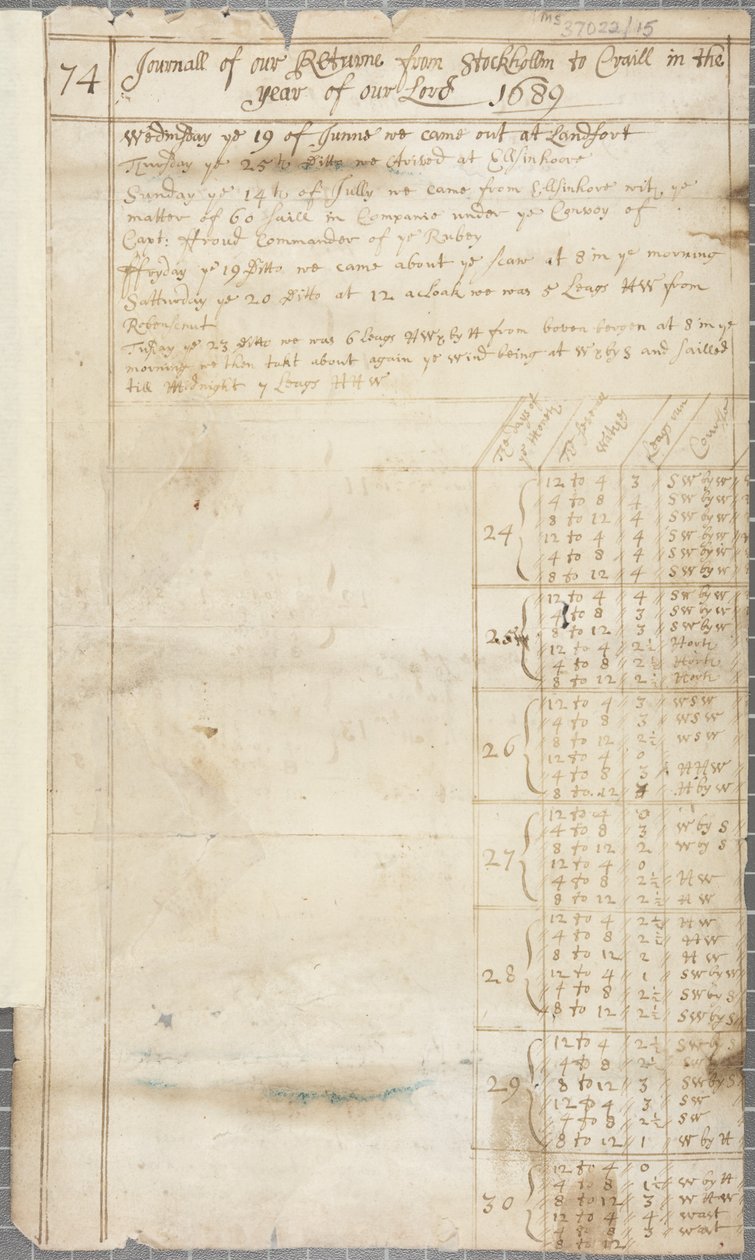 Ms 37022/15
74
Journall of our Returne from Stockhollm to Craill in the
year of our Lord 1689
Wednsday ye 19 of Junne we came out at Landfort
Thursday ye 25th Ditto we Arived at Ellsinhoore
Sunday ye 14th of Jully we came from Ellsinhore with ye
matter of 60 Saill in Companie under ye Convoy of
Capt: ffroud Commander of ye Rubey
ffryday ye 19 Ditto we came about ye scaw at 8 in ye morning
Satturday ye 20 Ditto at 12 acloak we was 5 Leags NW from
Robensnut
Tusday ye 23 Ditto we was 6 leags NW by N from boven bergen at 8 in ye
morning we then takt about again ye wind being at W by S and sailled
till Midnight 7 Leags NNW
The Days of ye Month The severall Watches Leags run Course
24
12 to 4 3 SW by W
4 to 8 4 SW by W
8 to 12 4 SW by W
12 to 4 4 SW by W
4 to 8 4 SW by W
8 to 12 4 SW by W
25
12 to 4 4 SW by W
4 to 8 3 SW by W
8 to 12 3 SW by W
12 to 4 2½ North
4 to 8 2½ North
8 to 12 2½ North
26
12 to 4 3 WSW
4 to 8 3 WSW
8 to 12 2½ WSW
12 to 4 0
4 to 8 3 NNW
8 to 12 N by W
27
12 to 4 0
4 to 8 3 W by S
8 to 12 2 W by S
12 to 4 0
4 to 8 2½ NW
8 to 12 2½ NW
28
12 to 4 2½ NW
4 to 8 2½ NW
8 to 12 2 NW
12 to 4 1 SW by W
4 to 8 2½ SW by S
8 to 12 2½ SW by S
29
12 to 4 2½ SW by S
4 to 8 2½
8 to 12 3 SW by S
12 to 4 3 SW
4 to 8 2½ SW
8 to 12 1 W by N
30
12 to 4 0
4 to 8 1½ W by N
8 to 12 3 WNW
12 to 4 4 west
4 to 8 3 west
8 to 12